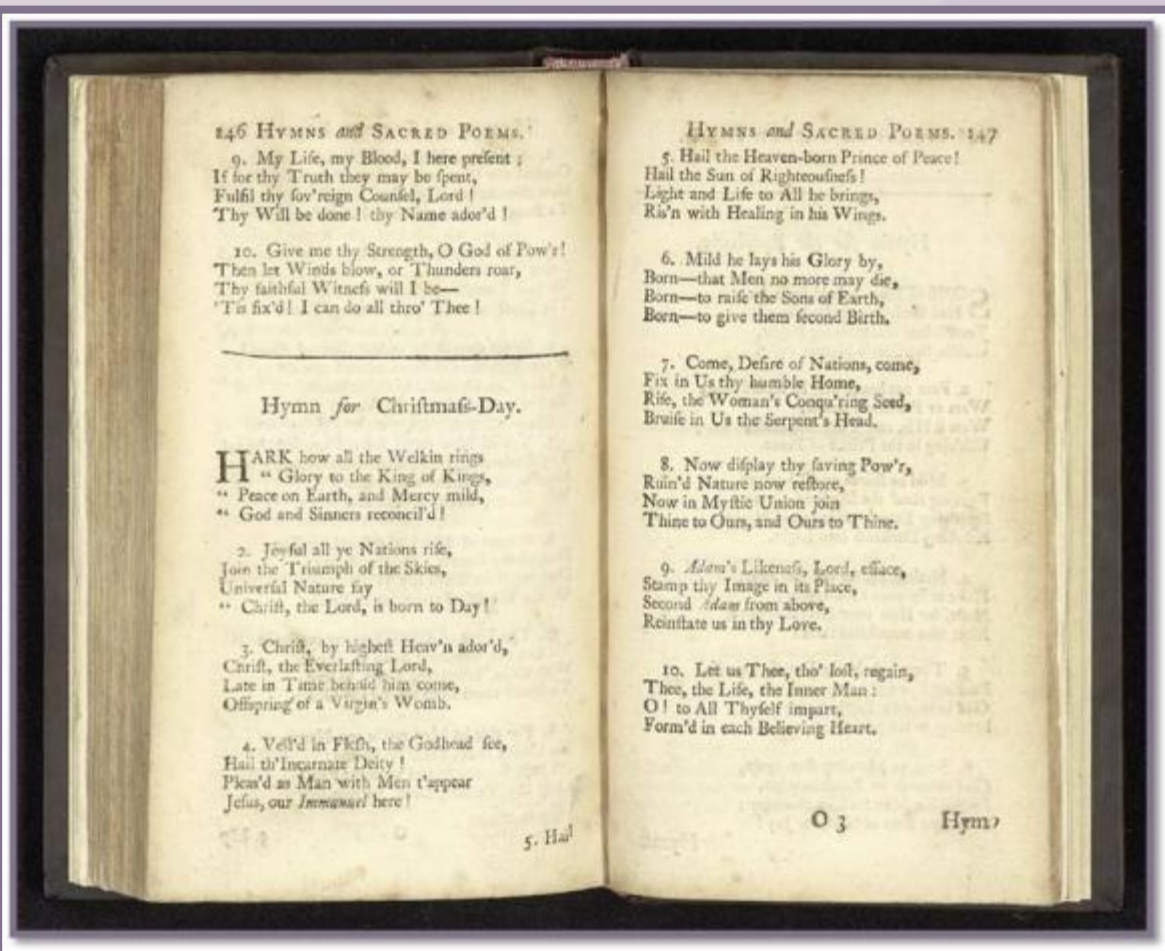 246 HYMNS and SACRED POEMS.
9. My Life, my Blood, I here preſent ;
If for thy Truth they may be ſpent,
Fulfil thy ſov'reign Counſel, Lord !
Thy Will be done ! thy Name ador'd !
10. Give me thy Strength, O God of Pow'r !
Then let Winds blow, or Thunders roar,
Thy faithful Witneſs will I be—
'Tis fix'd ! I can do all thro' Thee !
Hymn for Chriſtmaſs-Day.
HARK how all the Welkin rings
“ Glory to the King of Kings,
“ Peace on Earth, and Mercy mild,
“ God and Sinners reconcil'd !
2. Joyful all ye Nations riſe,
Join the Triumph of the Skies,
Univerſal Nature ſay
“ Chriſt, the Lord, is born to Day !
3. Chriſt, by higheſt Heav'n ador'd,
Chriſt, the Everlaſting Lord,
Late in Time behold him come,
Offspring of a Virgin's Womb.
4. Veil'd in Fleſh, the Godhead ſee,
Hail th'Incarnate Deity !
Pleas'd as Man with Men t'appear
Jeſus, our Immanuel here !
5. Hail
HYMNS and SACRED POEMS. 247
5. Hail the Heaven-born Prince of Peace !
Hail the Sun of Righteouſneſs !
Light and Life to All he brings,
Ris'n with Healing in his Wings.
6. Mild he lays his Glory by,
Born—that Men no more may die,
Born—to raiſe the Sons of Earth,
Born—to give them ſecond Birth.
7. Come, Deſire of Nations, come,
Fix in Us thy humble Home,
Riſe, the Woman's Conqu'ring Seed,
Bruiſe in Us the Serpent's Head.
8. Now diſplay thy ſaving Pow'r,
Ruin'd Nature now reſtore,
Now in Myſtic Union join
Thine to Ours, and Ours to Thine.
9. Adam's Likeneſs, Lord, efface,
Stamp thy Image in its Place,
Second Adam from above,
Reinſtate us in thy Love.
10. Let us Thee, tho' loſt, regain,
Thee, the Life, the Inner Man :
O ! to All Thyſelf impart,
Form'd in each Believing Heart.
O 3 Hymn